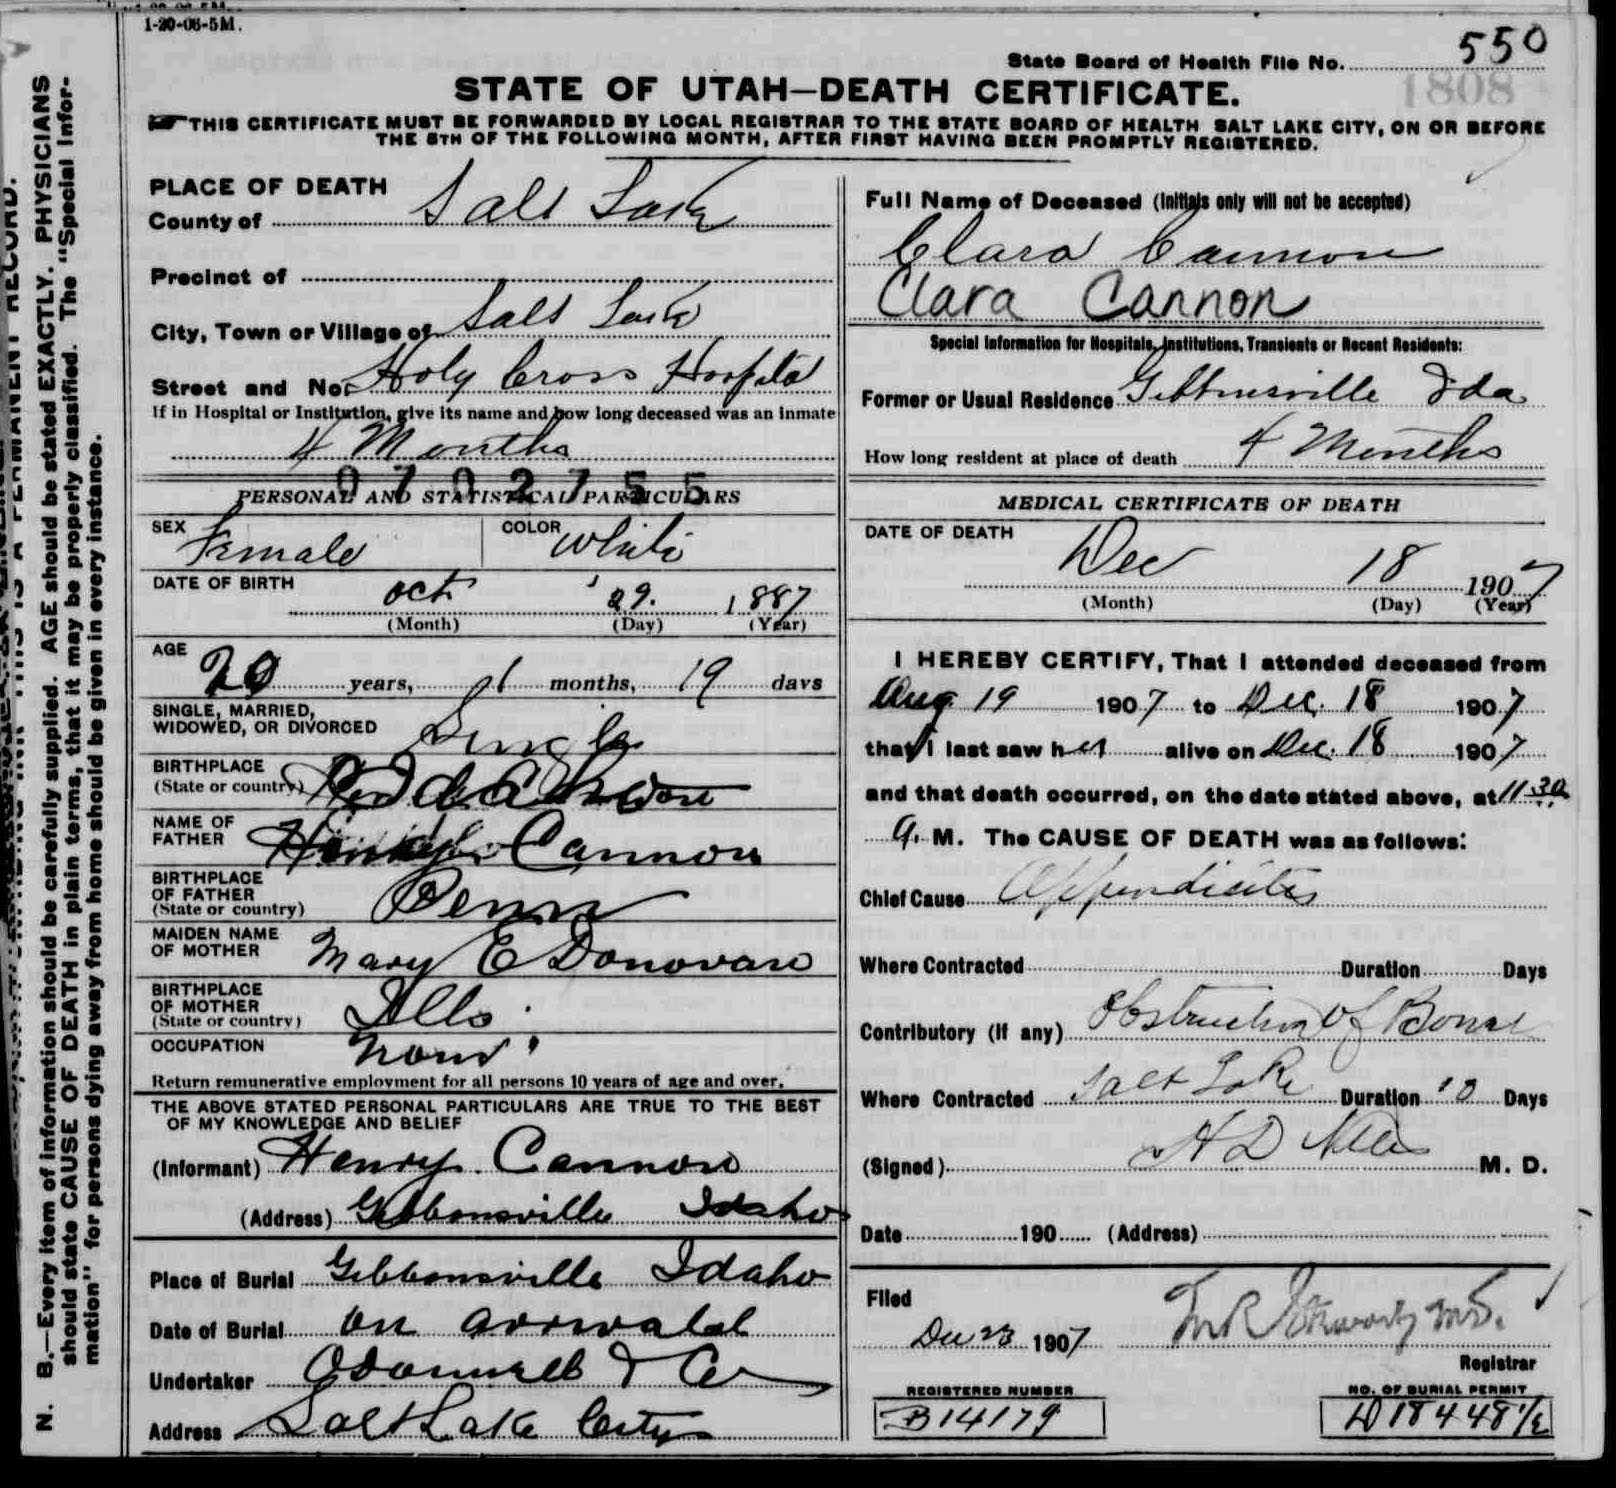 1-20-06-5M.
550
State Board of Health File No.
1808
STATE OF UTAH—DEATH CERTIFICATE.
THIS CERTIFICATE MUST BE FORWARDED BY LOCAL REGISTRAR TO THE STATE BOARD OF HEALTH SALT LAKE CITY, ON OR BEFORE
THE 5TH OF THE FOLLOWING MONTH, AFTER FIRST HAVING BEEN PROMPTLY REGISTERED.
N. B.—Every item of information should be carefully supplied. AGE should be stated EXACTLY. PHYSICIANS
should state CAUSE OF DEATH in plain terms, that it may be properly classified. The "Special Infor-
mation" for persons dying away from home should be given in every instance.
THIS IS A PERMANENT RECORD.
PLACE OF DEATH
County of Salt Lake
Precinct of
City, Town or Village of Salt Lake
Street and No. Holy Cross Hospital
If in Hospital or Institution, give its name and how long deceased was an inmate
4 Months
0702755
PERSONAL AND STATISTICAL PARTICULARS
SEX Female COLOR White
DATE OF BIRTH Oct 29. 1887
(Month) (Day) (Year)
AGE 20 years, 1 months, 19 days
SINGLE, MARRIED,
WIDOWED, OR DIVORCED Single
BIRTHPLACE
(State or country) Idaho
NAME OF
FATHER Henry Cannon
BIRTHPLACE
OF FATHER
(State or country) Penn
MAIDEN NAME
OF MOTHER Mary E Donovan
BIRTHPLACE
OF MOTHER
(State or country) Ills.
OCCUPATION None
Return remunerative employment for all persons 10 years of age and over.
THE ABOVE STATED PERSONAL PARTICULARS ARE TRUE TO THE BEST
OF MY KNOWLEDGE AND BELIEF
(Informant) Henry Cannon
(Address) Gibbonsville Idaho
Place of Burial Gibbonsville Idaho
Date of Burial on arrival
Undertaker O'Donnell & Co
Address Salt Lake City
Full Name of Deceased (Initials only will not be accepted)
Clara Cannon
Clara Cannon
Special Information for Hospitals, Institutions, Transients or Recent Residents:
Former or Usual Residence Gibbonsville Ida
How long resident at place of death 4 Months
MEDICAL CERTIFICATE OF DEATH
DATE OF DEATH
Dec 18 1907
(Month) (Day) (Year)
I HEREBY CERTIFY, That I attended deceased from
Aug 19 1907 to Dec. 18 1907
that I last saw her alive on Dec. 18 1907
and that death occurred, on the date stated above, at 11 30
a. M. The CAUSE OF DEATH was as follows:
Chief Cause Appendicitis
Where Contracted Duration Days
Contributory (if any) Obstruction of Bowel
Where Contracted Salt Lake Duration 10 Days
(Signed) H D M. D.
Date 190 (Address)
Filed
Dec 23 1907
Registrar
REGISTERED NUMBER
B14179
NO. OF BURIAL PERMIT
D18448½